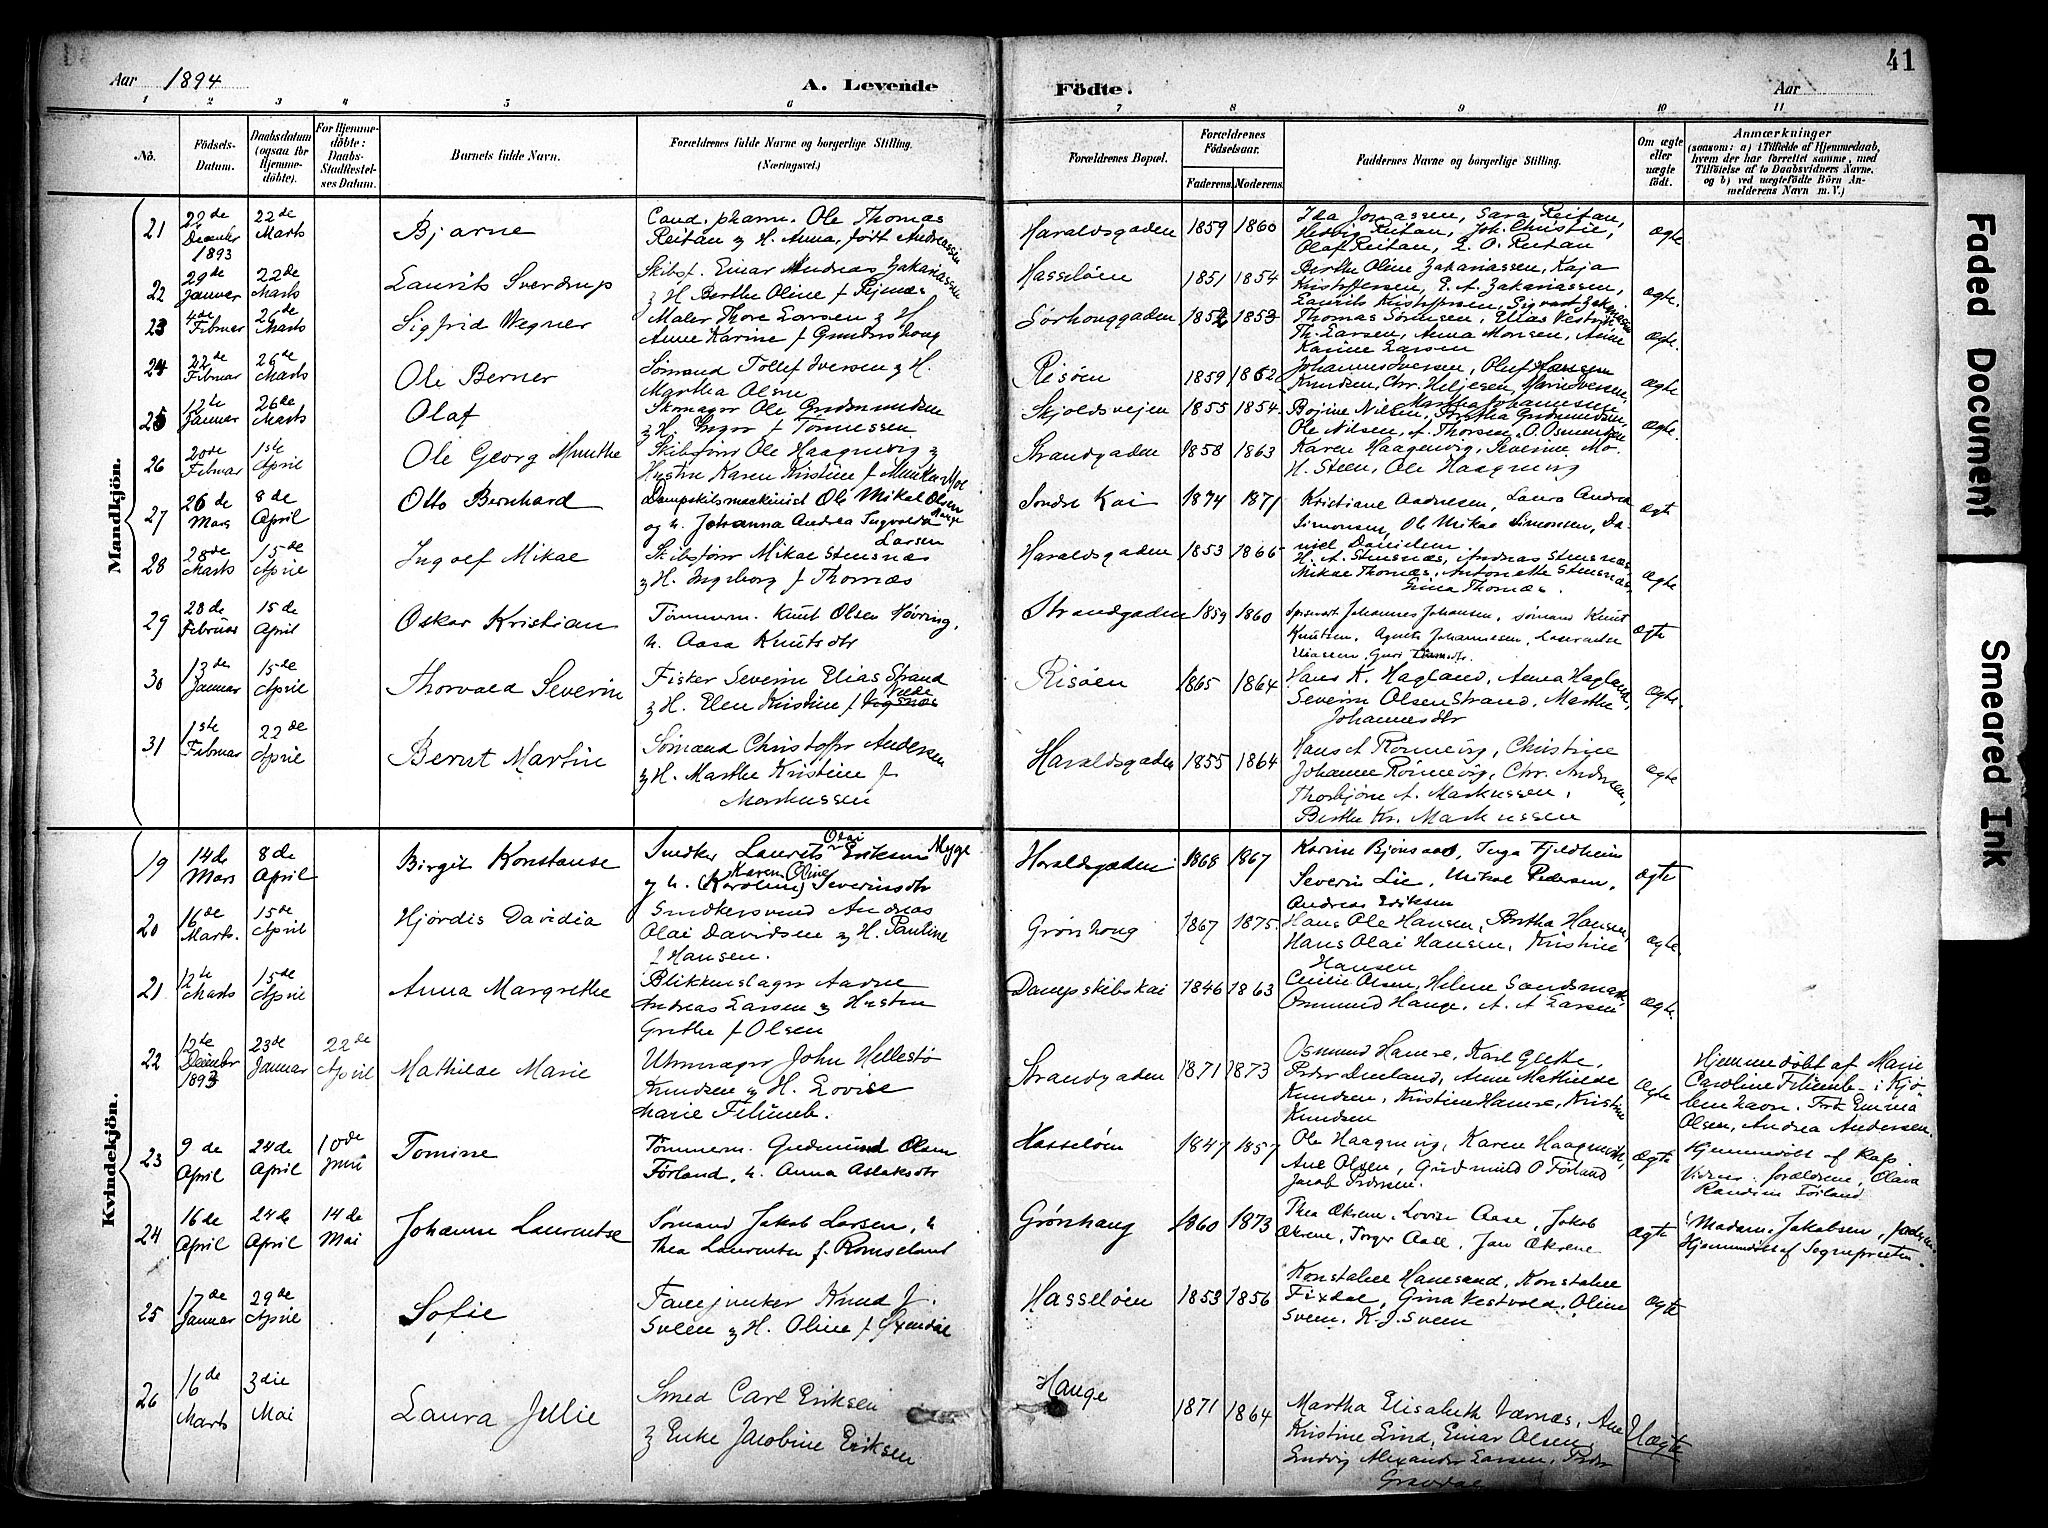 41
Aar 1894
A. Levende
Födte.
Aar
1 2 3 4 5 6 7 8 9 10 11
No.
Födsels-
Datum.
Daabsdatum
(ogsaa for
Hjemme-
döbte).
For Hjemme-
döbte:
Daabs-
Stadfæstel-
ses Datum.
Barnets fulde Navn.
Forældrenes fulde Navne og borgerlige Stilling.
(Næringsvei.)
Forældrenes Bopæl.
Forældrenes
Födselsaar.
Faderens.
Moderens.
Faddernes Navne og borgerlige Stilling.
Om ægte
eller
uægte
födt.
Anmærkninger
(saasom: a) i Tilfælde af Hjemmedaab,
hvem der har forrettet samme, med
Tilföielse af to Daabsvidners Navne,
og b) ved uægtefödte Börn An-
melderens Navn m. V.)
Mandkjön.
21
22de
December
1893
22de
Marts
Bjarne
Cand. pharm. Ole Thomas
Reitan & H. Anna, født Andreassen
Haraldsgaden
1859
1860
Ida Jonassen, Sara Reitan,
Hedvig Reitan, Joh. Christie,
Olaf Reitan, E. O. Reitan
Ægte
22
29de
Januar
22de
Marts
Laurits Sverdrup
Skibsf. Einar Andreas Zakariassen
& H. Berthe Oline f
Hasseløen
1851
1854
Berthe Oline Zakariassen, Kaja
Kristoffersen, E. A. Zakariassen,
Laurits Kristoffersen, Sigvart Zakariassen
Ægte.
23
4de
Februar
26de
Marts
Sigfrid Wegner
Maler Thore Larsen & H
Anne Karine f Gundershaug
Sørhauggaden
1852
1853
Thomas Sørensen, Elias Vestvik
Th. Larsen, Anna Monsen, Anne
Karine Larsen
Ægte.
24
22de
Februar
26de
Marts
Ole Berner
Sømand Tollef Iversen & H.
Martha Olsen
Risøen
1859
1862
Johannes Iversen, Oluf Hansen
Knudsen, Chr. Heljesen, Marie Iversen,
Martha Johannessen
Ægte
25
12te
Januar
26de
Marts
Olaf
Skomager Ole Gudmundsen
& H. Inger f Tønnessen
Skjoldsvejen
1855
1854
Bojine Nilsen, Bertha Gudmundsen,
Ole Nilsen, A. Thorsen, O. Osmundsen
Ægte.
26
20de
Februar
1ste
April
Ole Georg Munthe
Skibsfører Ole Haagensvig &
Hustru Karen Kristine f Munthe Moe
Strandgaden
1858
1863
Karen Haagensvig, Severine Mo.
H. Steen, Ole Haagensvig
27
26de
Mars
8de
April
Otto Bernhard
Dampskibsmaskinist Ole Mikal Olsen
Hauge
og h. Johanna Andrea Ingvalda
Larsen
Søndre Kai
1874
1871
Kristiane Aadnesen, Laura Andrea
Simonsen, Ole Mikal Simonsen, Da-
niel Danielsen
Ægt
28
28de
Marts
15de
April
Ingolf Mikal
Skibsfører Mikal Stensnæs
& H. Ingeborg f Thornæs
Haraldsgaden
1853
1866
H. A. Stensnæs, Andreas Stensnæs
Mikal Thornæs, Antonette Stensnæs,
Gina Thornæs.
Ægte
29
28de
Februar
15de
April
Oskar Kristian
Tømmerm. Knut Olsen Høvring,
h. Aasa Knutsdtr
Strandgaden
1859
1860
Johannes Johansen, sømand Knut
Knutsen, Agnete Johannesen,
Eliassen, Guri
Ægte
30
13de
Januar
15de
April
Thorvald Severin
Fisker Severin Elias Strand
& H. Elen Kristine f
Risøen
1865
1864
Hans K. Hagland, Anna Hagland,
Severin Olsen Strand, Marthe
Johannesdtr
Ægte.
31
1ste
Februar
22de
April
Bernt Martin
Sømand Christoffer Andersen
& H. Marthe Kristine f
Markussen
Haraldsgaden
1855
1864
Hans A Rønnevig, Christine
Johanne Rønnevig, Chr. Andersen,
Thorbjørn A. Markussen,
Berthe Kr. Markussen
Ægte
Kvindekjön.
19
14de
Mars
8de
April
Birgit Konstanse
Snedker Laurits Olai Eriksen Myge
og h. (Karoline) Karen Oline Severinsdtr
Haraldsgaden
1868
1867
Karine Bjønsaas, Inga Fjeldheim
Severin Lie, Mikal Pedersen,
Andreas Eriksen
Ægte
20
16de
Marts.
15de
April
Hjørdis Davidia
Snedkersvend Andreas
Olai Davidsen & H. Pauline
f Hansen.
Grønhaug
1867
1875
Hans Ole Hansen, Bertha Hansen,
Hans Olai Hansen, Kristine
Hansen
Ægte.
21
12te
Marts
15de
April
Anna Margrethe
Blikkenslager Aadne
Andreas Larsen & Hustru
Grethe f Olsen
Dampskibskai
1846
1863
Cecilie Olsen, Helene Sandsmark,
Osmund Hauge, A. A Larsen
Ægte.
22
12te
December
1893
23de
Januar
22de
April
Mathilde Marie
Uhrmager John Hellestø
Knudsen & H. Lovise
Marie Flüment.
Strandgaden
1871
1873
Osmund Hamre, Karl Grethe,
Peder Øverland, Anne Mathilde
Knudsen, Kristine Hamre, Kristine
Knudsen
Ægte
Hjemmedøbt af Marie
Caroline Flüment i Kjø-
benhavn. Frk Emma
Olsen, Andrea Andersen.
23
9de
April
24de
April
10de
Juni
Tomine
Tømmerm. Gudmund Olsen
Førland, h. Anna Aslaksdtr
Hasseløen
1847
1857
Ole Haagensvig, Karen Haagensvik,
Ane Olsen, Gudmund O Førland
Jacob Pedersen.
Ægte
Hjemmedøbt af Kap.
Vidner: forældrene, Olava
Randine Førland
24
16de
April
24de
April
14de
Mai
Johanne Laurentse
Sømand Jakob Larsen, h
Thea Laurentse f. Romseland
Grønhaug
1860
1873
Thea Økrene, Lovise Aase, Jakob
Økrene, Torger Aase, Jan Økrene
Ægte
Madam Jakobsen, faderen.
Hjemmedøbt af Sognepresten.
25
17de
Januar
29de
April
Sofie
Fanejunker Knud J.
Sveen & H. Oline f Øxendal
Hasseløen
1853
1856
Konstabel Hanesand, Konstabel
Fixdal, Gina Vestvold, Oline
Sveen, K. J. Sveen
Ægte
26
16de
Marts
3die
Mai
Laura Julie
Smed Carl Eriksen
& Enke Jacobine Eriksen
Hauge
1871
1864
Martha Elisabeth Værnæs, Ane
Kristine Lind, Einar Olsen,
Ludvig Alexander Larsen, Peder
Gravdal
Uægte
Faded Document
Smeared Ink